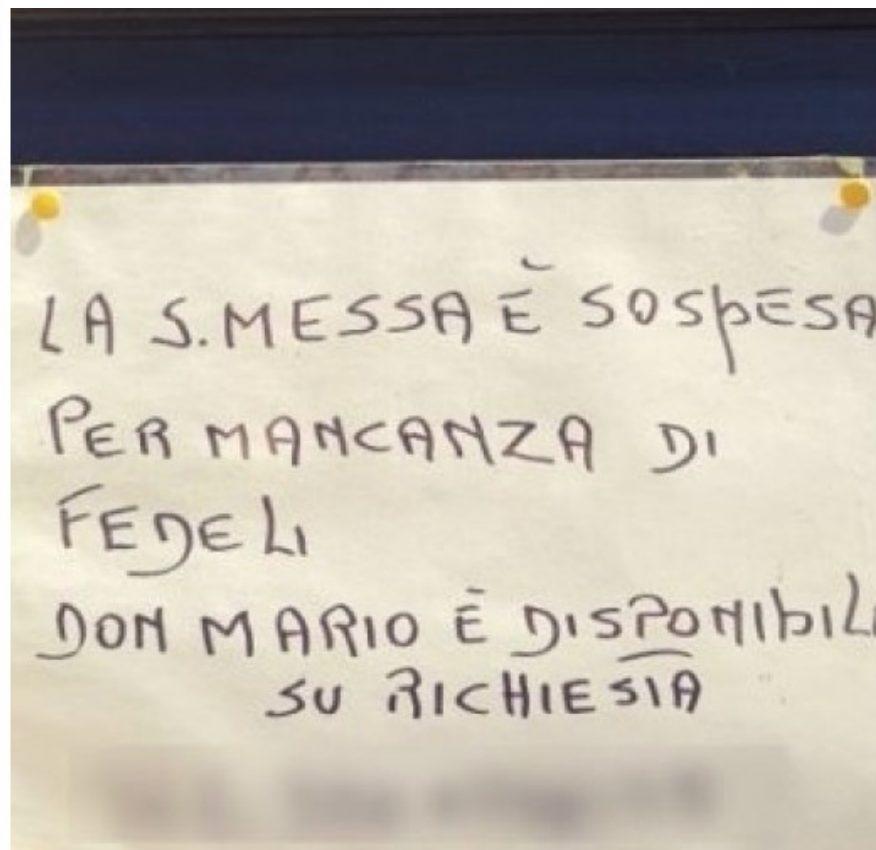 LA S. MESSA È SOSPESA
PER MANCANZA DI
FEDELI
DON MARIO È DISPONIBILE
SU RICHIESTA